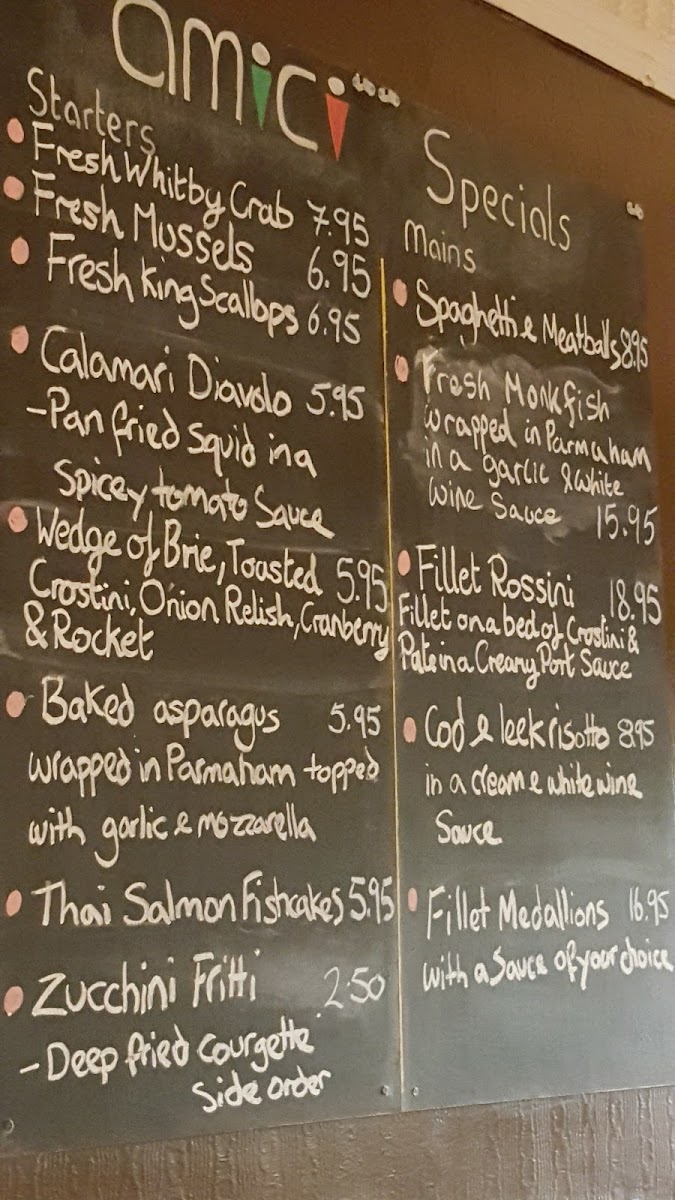 amici
Starters
Fresh Whitby Crab 7.95
Fresh Mussels 6.95
Fresh King Scallops 6.95
Calamari Diavolo 5.95
-Pan fried squid in a
spicey tomato Sauce
Wedge of Brie, Toasted 5.95
Crostini, Onion Relish, Cranberry
& Rocket
Baked asparagus 5.95
wrapped in Parmaham topped
with garlic & mozzarella
Thai Salmon Fishcakes 5.95
Zucchini Fritti 2.50
-Deep fried courgette
Side order
Specials
Mains
Spaghetti & Meatballs 8.95
Fresh Monkfish
wrapped in Parmaham
in a garlic & white
wine Sauce 15.95
Fillet Rossini 18.95
Fillet on a bed of Crostini &
Pate in a Creamy Port Sauce
Cod & leek risotto 8.95
in a cream & white wine
Sauce
Fillet Medallions 16.95
with a Sauce of your choice